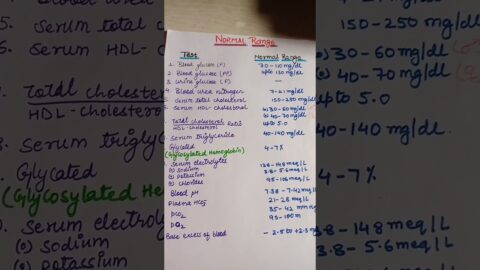 Normal Range
Test Normal Range
1. Blood glucose (F) 70 - 110 mg/dl
2. Blood glucose (PP) upto 130 mg/dl
3. Urine glucose (F) —
4. Blood urea nitrogen 7-21 mg/dl
5. Serum total cholesterol 150-250 mg/dl
6. Serum HDL-cholesterol 30-60 mg/dl
40-70 mg/dl
Total cholesterol ratio upto 5.0
HDL-cholesterol
Serum triglyceride 40-140 mg/dl
Glycated 4-7%
(Glycosylated Hemoglobin)
Serum electrolytes
Sodium 138-148 meq/L
Potassium 3.8-5.6 meq/L
Chlorides 95-106 meq/L
Blood pH 7.38 - 7.42
Plasma 21-28 meq/L
pCO2 35-42 mm
pO2 95-100
Base excess of blood -2.5 to +2.5
5. Serum total
Serum HDL-ch
Total choleste
HDL-cholester
Serum trigly
Glycated
(Glycosylated Hem
Serum electro
Sodium
Potassium
150-250 mg/dl
30-60 mg/dl
40-70 mg/dl
upto 5.0
40-140 mg/dl
4-7%
8-148 meq/L
.8-5.6 meq/L